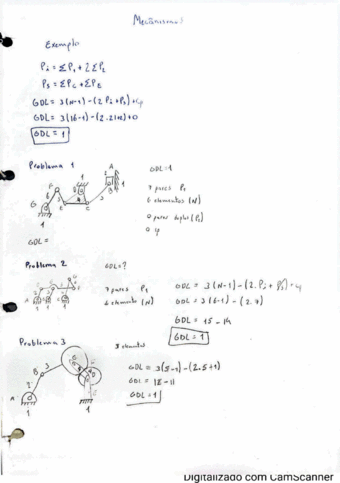 Mecanismos
Ejemplo
Pi = ΣP1 + 2ΣP2
Ps = ΣPc + ΣPE
GDL = 3(N-1) - (2Pi + Ps) + φ
GDL = 3(16-1) - (2·21+2)+0
GDL = 1
Problema 1
GDL=1
7 pares P1
6 elementos (N)
0 pares
0 φ
A
B
F
G
E
C
1
GDL =
Problema 2
GDL=?
7 pares P1
6 elementos (N)
GDL = 3(N-1) - (2·Pi + Ps) + φ
GDL = 3(6-1) - (2·7)
GDL = 15 - 14
GDL = 1
Problema 3
5 elementos
GDL = 3(5-1) - (2·5+1)
GDL = 12 - 11
GDL = 1
B
3
2
A
1
1
Digitalizado com CamScanner